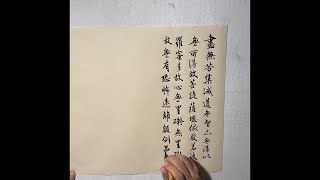 盡無苦集滅道無智亦無得以
無所得故菩提薩埵依般若波
羅蜜多故心無罣礙無罣
故無有恐怖遠離顛倒